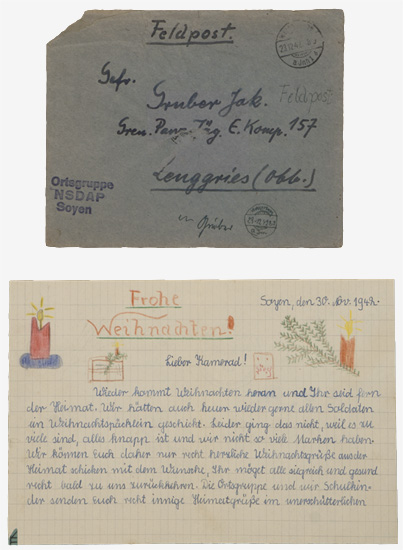 Feldpost.
Gefr.
Gruber Jak.
Feldpost
Gren. Panz. Jäg. E. Komp. 157
Lenggries (Obb.)
Ortsgruppe
NSDAP
Soyen
Frohe
Weihnachten!
Soyen, den 30. Nov. 1942.
Lieber Kamerad!
Wieder kommt Weihnachten heran und Ihr seid fern
der Heimat. Wir hätten auch heuer wieder gerne allen Soldaten
ein Weihnachtspäcklein geschickt. Leider ging das nicht, weil es zu
viele sind, alles knapp ist und wir nicht so viel Marken haben.
Wir können Euch daher nur recht herzliche Weihnachtsgrüße aus der
Heimat schicken mit dem Wunsche, Ihr möget alle siegreich und gesund
recht bald zu uns zurückkehren. Die Ortsgruppe und wir Schulkin-
der senden Euch recht innige Heimatgrüße im unerschütterlichen